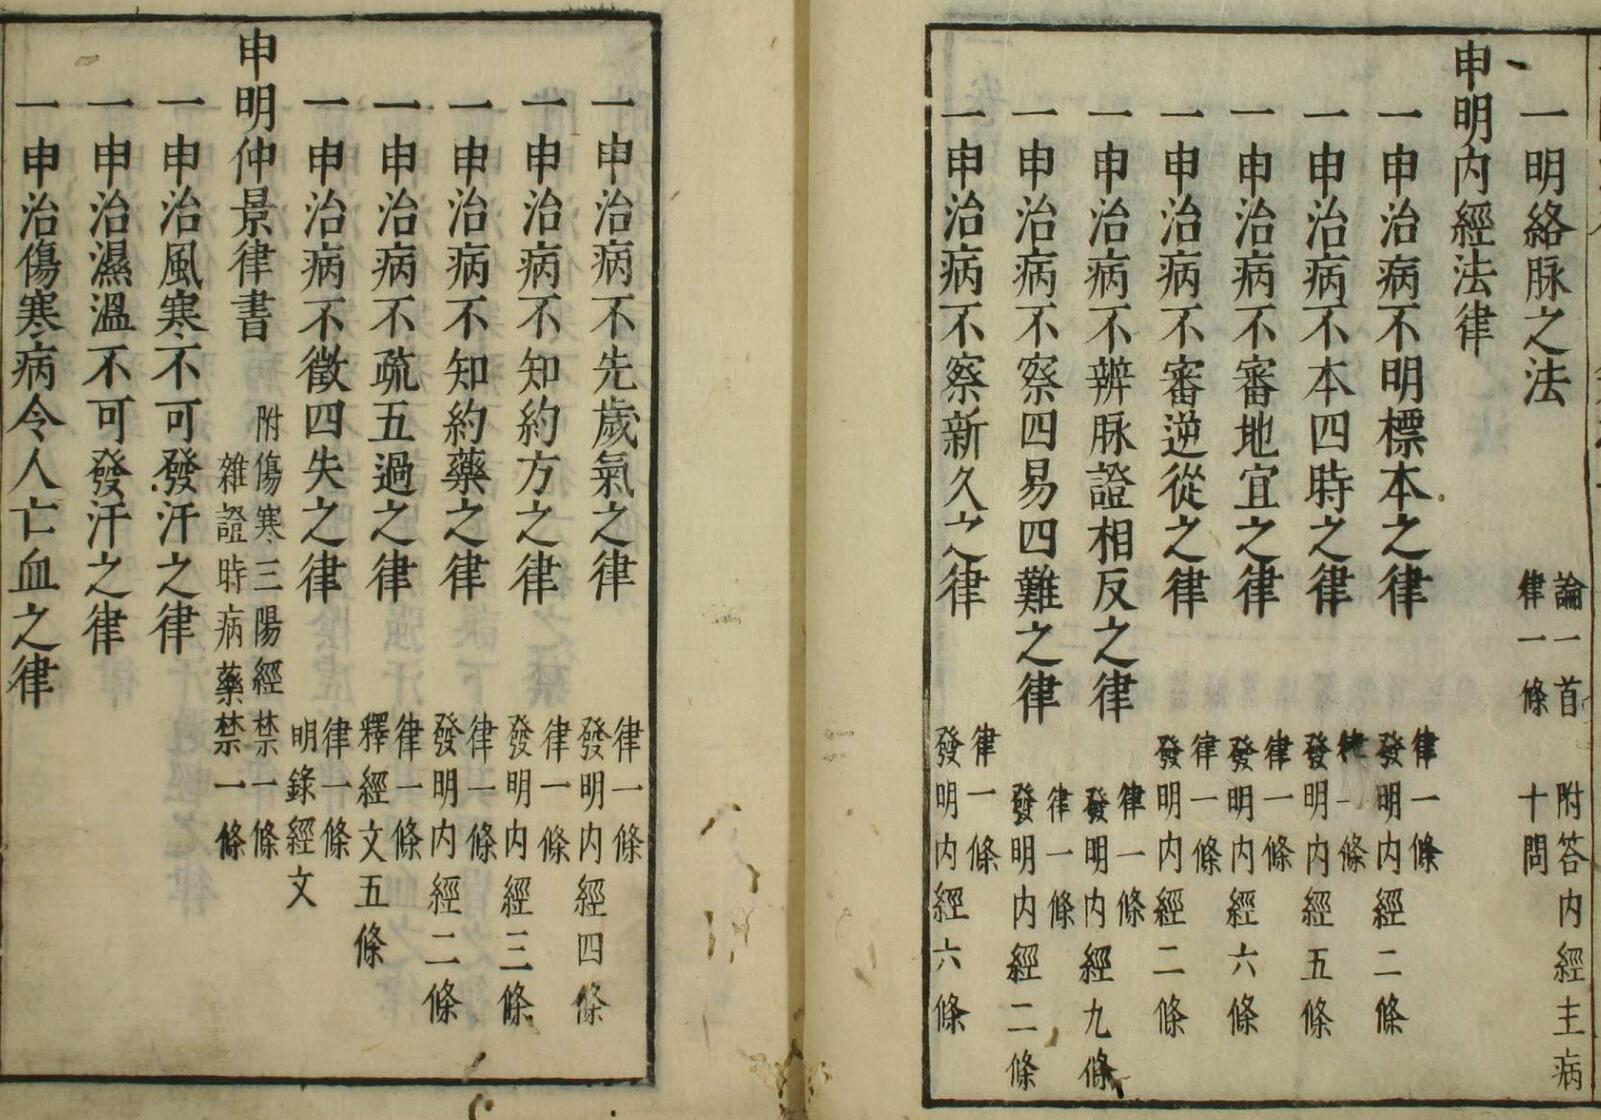 一明絡脉之法 論一首 律一條 附答内經主病 十問
申明内經法律
一申治病不明標本之律 律一條 發明内經二條
一申治病不本四時之律 律一條 發明内經五條
一申治病不審地宜之律 律一條 發明内經六條
一申治病不審逆從之律 律一條 發明内經二條
一申治病不辨脉證相反之律 律一條 發明内經九條
一申治病不察四易四難之律 律一條 發明内經二條
一申治病不察新久之律 律一條 發明内經六條
一申治病不先歲氣之律 律一條 發明内經四條
一申治病不知約方之律 律一條 發明内經三條
一申治病不知約藥之律 律一條 發明内經二條
一申治病不疏五過之律 律一條 釋經文五條
一申治病不徵四失之律 律一條 明錄經文
申明仲景律書 附傷寒三陽經禁一條 雜證時病藥禁一條
一申治風寒不可發汗之律
一申治濕溫不可發汗之律
一申治傷寒病令人亡血之律